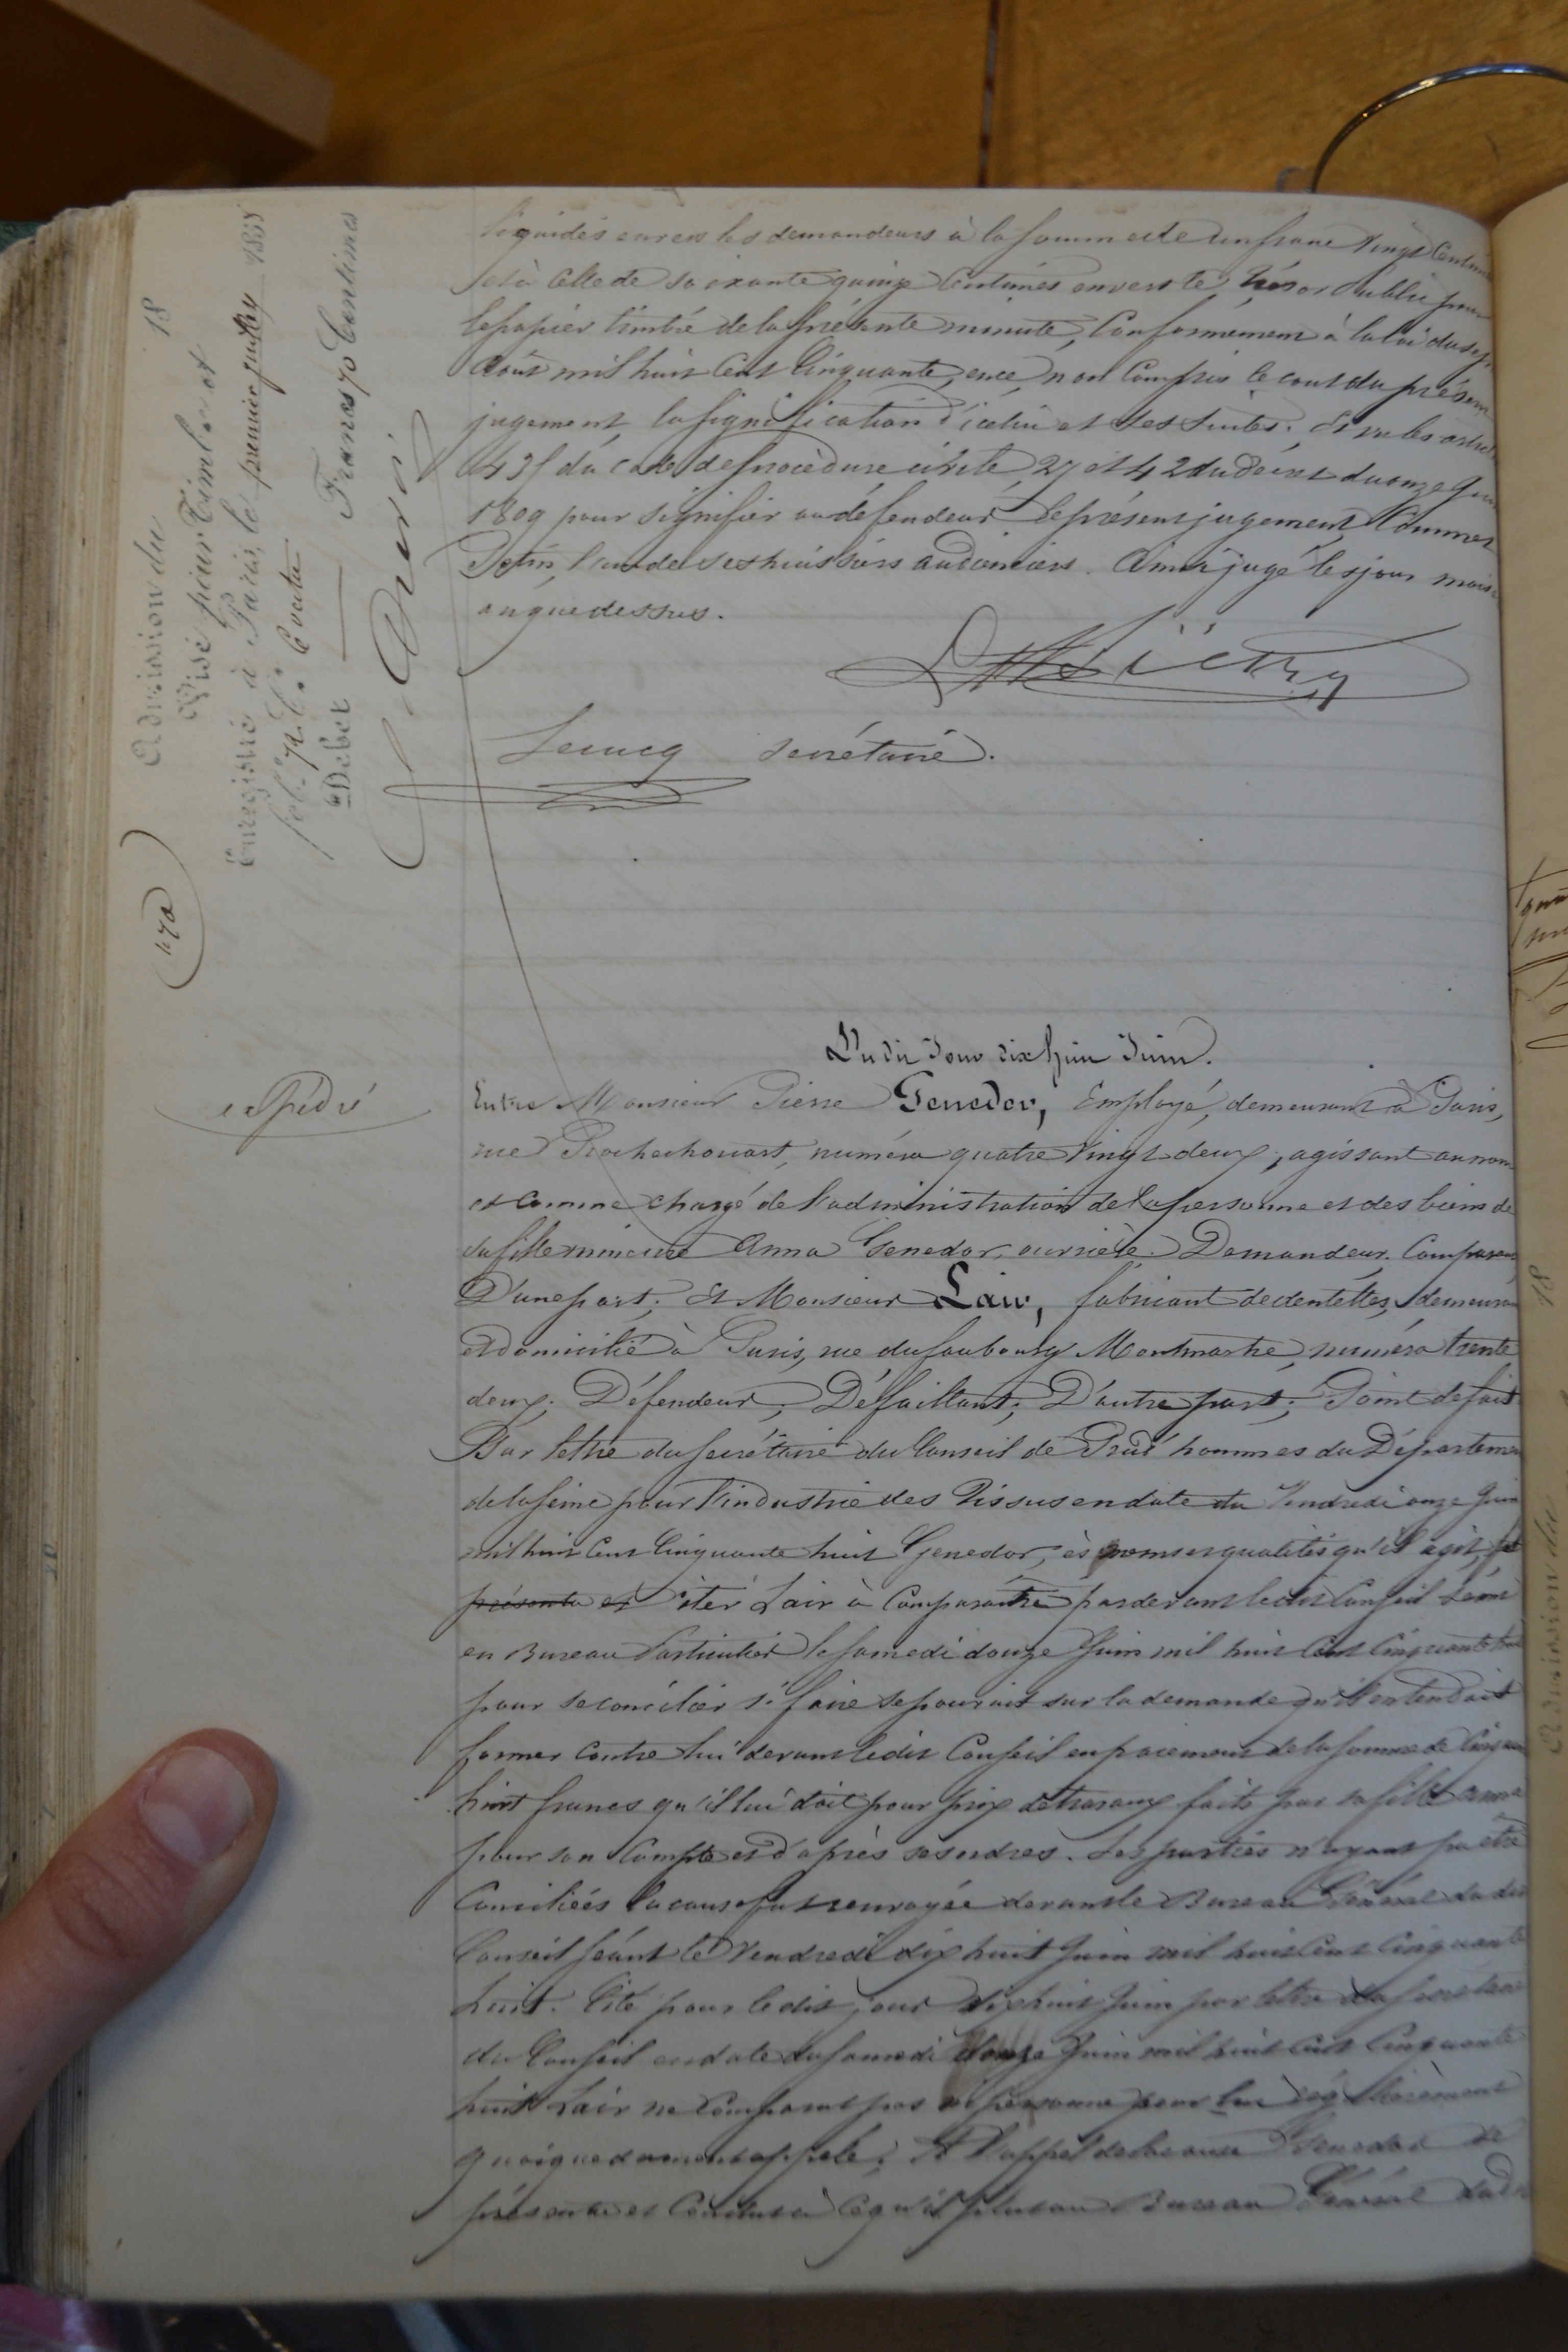 liquidés envers les demandeurs à la somme de un franc vingt centimes
et à celle de soixante quinze centimes envers le trésor Public pour
le papier timbré de la présente minute, Conformément à la loi du sept
Août mil huit Cent Cinquante, ence, non Compris le cout du présent
jugement, la signification d'icelui et ses suites. Et vu les articles
435 du code de procédure civile, 27 et 42 du décret du onze Juin
1809 pour signifier au défendeur le présent jugement, Commet
l'un de ses huissiers audienciers. Ainsi jugé les jour mois
an que dessus.
Lecucq secrétaire.
Audience du 18
Visé pour Timbre et
Enregistré à Paris le premier juillet 1858
fol. 72 Co
Debet Francs 70 Centimes
(470)
Du dit Jour dix huit Juin.
expédié
Entre Monsieur Pierre Genedor, Employé, demeurant à Paris,
rue Rochechouart, numéro quatre vingt deux, agissant au nom
et comme chargé de l'administration de la personne et des biens de
sa fille mineure Anna Genedor, ouvrière. Demandeur. Comparant
D'une part; Et Monsieur Lair, fabricant de dentelles, demeurant
et domicilié à Paris, rue du faubourg Montmartre, numéro trente
deux; Défendeur; Défaillant; D'autre part; Point de fait
Par lettre du secrétaire du Conseil de Prud'hommes du Département
de la Seine pour l'industrie des Tissus en date du Vendredi onze Juin
mil huit Cent Cinquante huit Genedor, ès noms et qualités qu'il agit, fit
présenta et citer Lair à Comparaître par devant ledit Conseil séant
en Bureau Particulier le samedi douze Juin mil huit Cent Cinquante huit
pour se concilier si faire se pouvait sur la demande qu'il entendait
former contre lui devant ledit Conseil en paiement de la somme de Cinquante
huit francs qu'il lui doit pour prix de travaux faits par sa fille anna
pour son Compte et d'après ses ordres. Les parties n'ayant pu être
Conciliées la cause fut renvoyée devant le Bureau Général du dit
Conseil séant le Vendredi dix huit Juin mil huit Cent Cinquante
huit. Cité pour ledit jour dix huit Juin par lettre du secrétaire
du Conseil en date du samedi douze Juin mil huit Cent Cinquante
huit Lair ne Comparut pas ni personne pour lui régulièrement
quoique dument appelé; A l'appel de la cause Genedor se
présenta et Conclut à ce qu'il plut au Bureau Général du dit